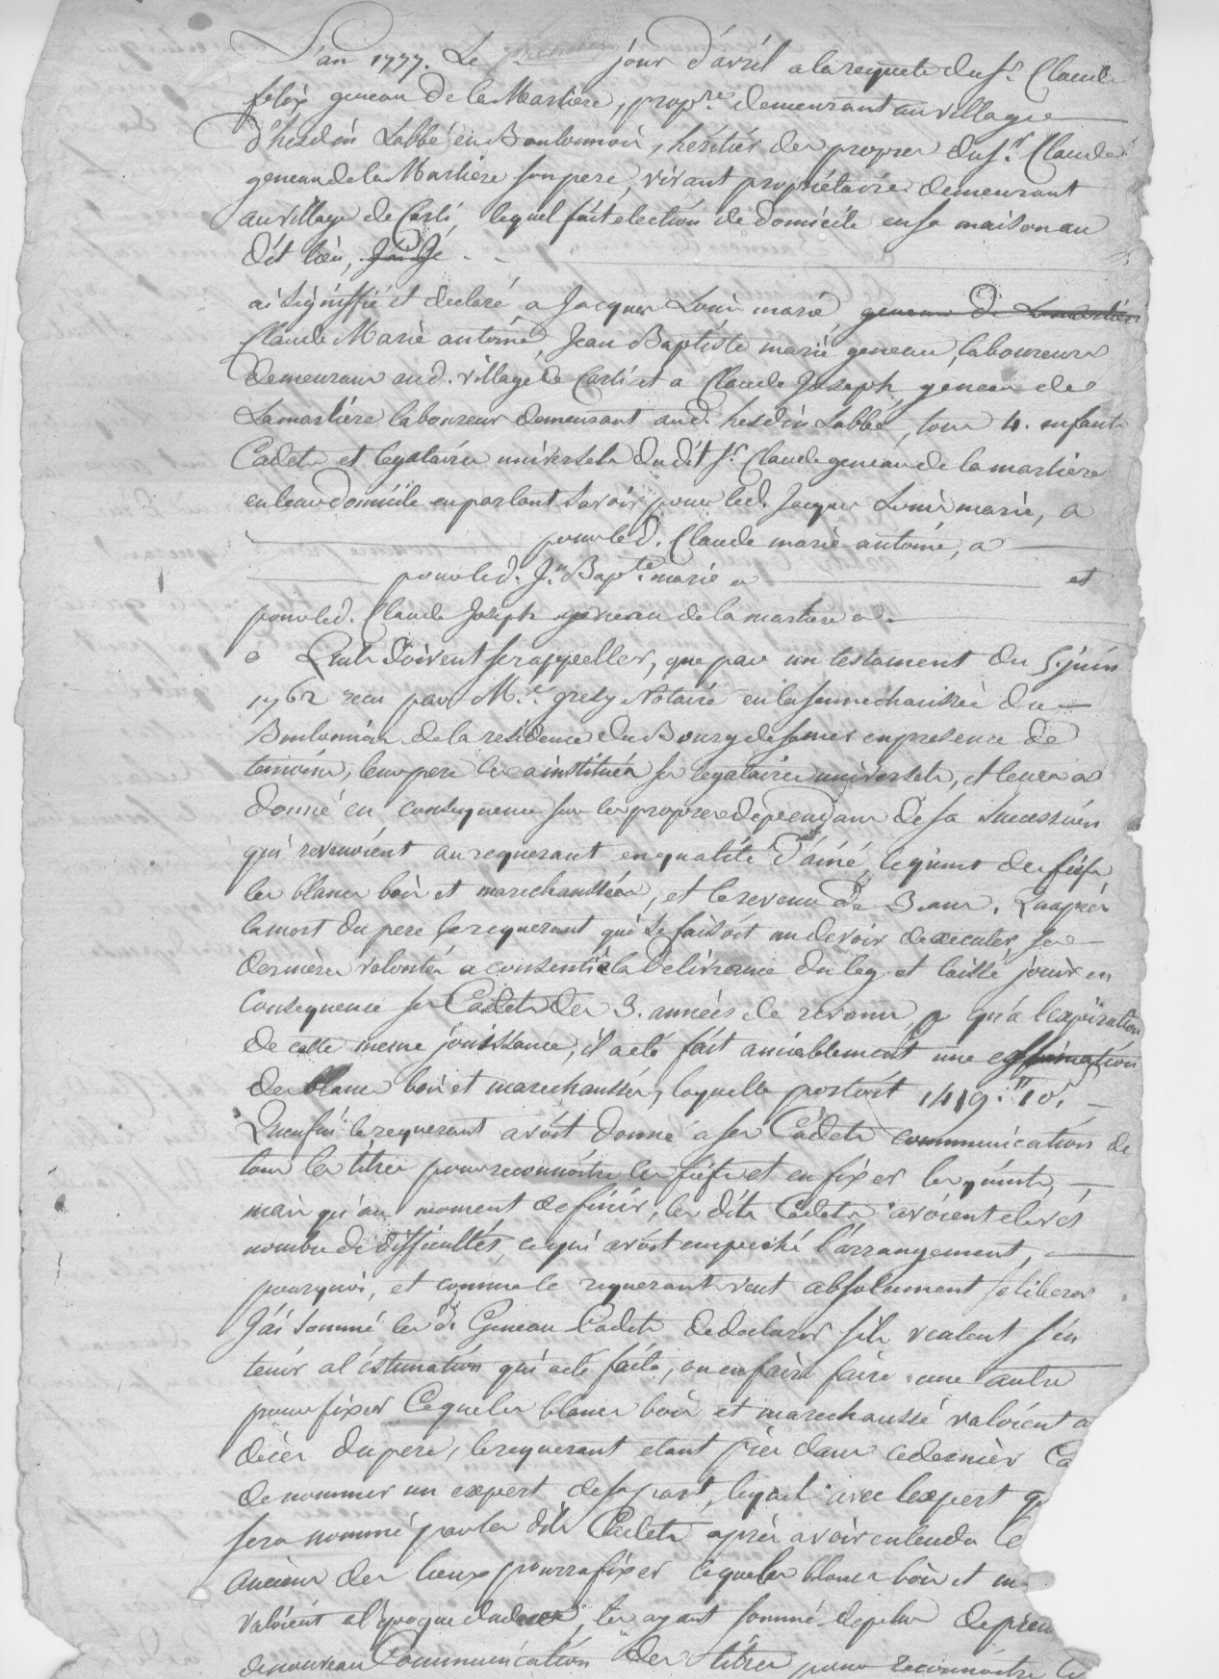 L'an 1777. Le premier jour d'avril a la requete du Sr. Claude
felix geneau De la Marliere, propre. demeurant au village
d'hesdin Labbé en Boulonnois, héritier des propres du Sr. Claude
geneau de la Marliere son pere, vivant propriétaire demeurant
au village de Carli lequel fait election de domicile en sa maison au
dit lieu,
ai signiffié et declaré a Jacques Louis marie geneau de Lamarliere
Claude Marie antoine, Jean Baptiste marie geneau, laboureurs
demeurans aud. village de Carli et a Claude Joseph geneau de
Lamarliere laboureur demeurant aud. hesdin Labbé, tous 4. enfants
Cadets et legataires universels dudit Sr. Claude geneau de la marliere
en leur domicile en parlant savoir pour led. Jacques Louis marie, a
pour led. Claude marie antoine, a
pour led. Jn. Bapte. marie a et
pour led. Claude Joseph geneau de la marliere a
Quils doivent se rappeller, que par un testament du 5. juin
1762 recu par Me. gresy Notaire en la sennechaussée du
Boulonnois de la residence du Bourg de samer en presence de
temoins, leur pere les a institués ses legataires universels, et leur a
donné en consequence sur les propres dependans de sa succession
qui revenoient au requerant en qualité d'ainé, le quint des fiefs
les blancs bois et marechaussées, et le revenu de 3. ans. Quaprès
la mort du pere le requerant qui se faisoit un devoir d'executer ses
dernieres volontés a consenti a la delivrance du leg et laissé jouir en
Consequence ses Cadets des 3. années de revenu, qu'a l'expiration
de cette meme jouissance, il a eté fait amiablement une estimation
des blancs bois et marechaussées, laquelle portoit 1419.tt 10.s
Quensuite le requerant avoit donné a ses Cadets communication de
tous les titres pour reconnoitre les fiefs et en fixer les quints,
mais qu'au moment de finir, les dits Cadets avoient elevés
nombre de difficultés, ce qui avoit empeché l'arrangement,
pourquoi, et comme le requerant veut absolument se liberer
J'ai sommé les ds. Geneau Cadets de declarer s'ils veulent s'en
tenir a l'estimation qui a eté faite, ou en faire faire une autre
pour fixer Ce que les blancs bois et marechaussé valoient a
décès du pere, le requerant etant pret dans ce dernier Ca
de nommer un expert de sa part, lequel avec l'expert q
sera nommé par les dits Cadets après avoir entendu le
anciens des lieux pourra fixer ce que les blancs bois et m
valoient al'epoque du deces, les ayant sommé de plus de pren
de nouveau Communication des titres pour reconnoitre les